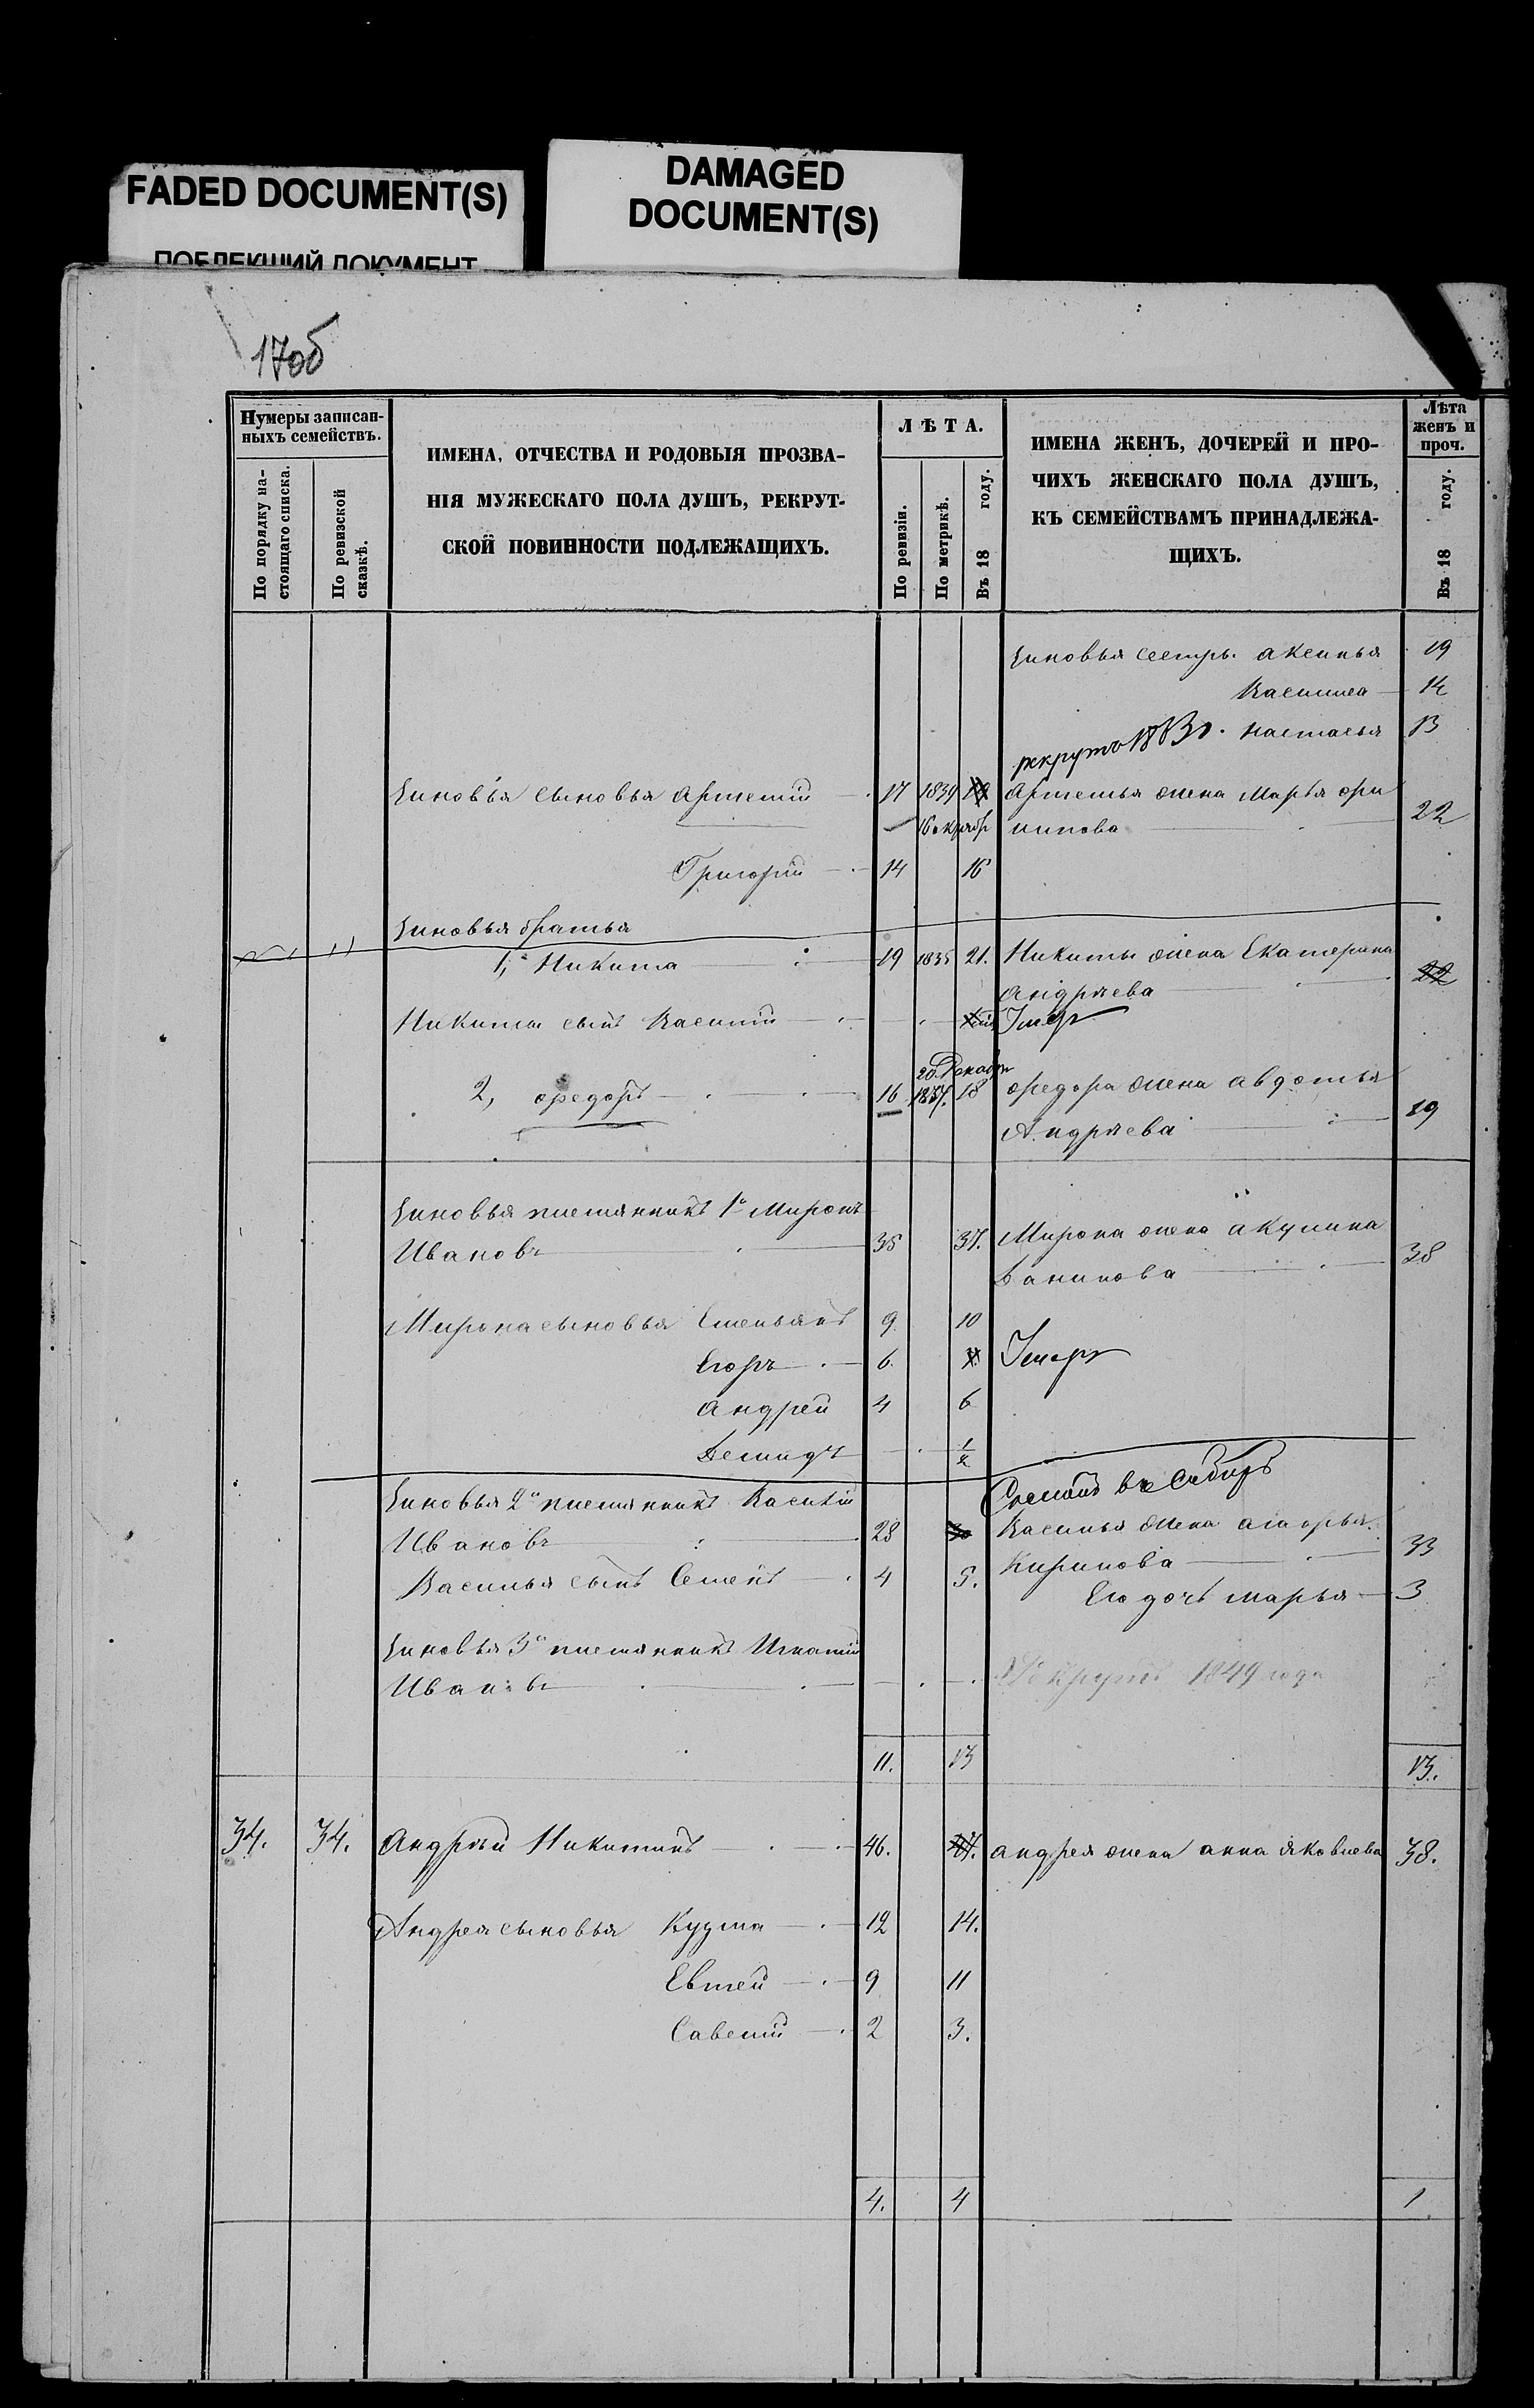 FADED DOCUMENT(S)
ПОБЛЕКШИЙ ДОКУМЕНТ
DAMAGED
DOCUMENT(S)
17об
Нумеры записан-
ныхъ семействъ.
По порядку на-
стоящаго списка.
По ревизской
сказкѣ.
ИМЕНА, ОТЧЕСТВА И РОДОВЫЯ ПРОЗВА-
НІЯ МУЖЕСКАГО ПОЛА ДУШЪ, РЕКРУТ-
СКОЙ ПОВИННОСТИ ПОДЛЕЖАЩИХЪ.
ЛѢТА.
По ревизіи.
По метрикѣ.
Въ 18 году.
ИМЕНА ЖЕНЪ, ДОЧЕРЕЙ И ПРО-
ЧИХЪ ЖЕНСКАГО ПОЛА ДУШЪ,
КЪ СЕМЕЙСТВАМЪ ПРИНАДЛЕЖА-
ЩИХЪ.
Лѣта
женъ и
проч.
Въ 18 году.
Зиновья сестры Аксинья 19
14
Настасья 13
рекрутъ
Зиновья сыновья Артемій 17 1839 Артемья жена Марья Фи
липова 22
Григорій 14 16
Зиновья братья
1, Никита 19 1835 21. Никиты жена Екатерина
Андрѣева 22
Никиты сынъ Василій Умеръ
20 Декабр
2, Федоръ 16 1837. 18 Федора жена Авдотья
Андрѣева 19
Зиновья племянникъ 1й Миронъ
Ивановъ 35 37. Мирона жена Акулина
Данилова 38
Мирона сыновья Емельянъ 9. 10
Егоръ 6. Умеръ
Андрей 4 6
Демидъ 1/2
Сосланъ въ Сибирь
Зиновья 2й племянникъ Василій
Ивановъ 28 30 Василья жена Агафья
Кирилова 33
Василья сынъ Семенъ 4 5.
Его дочь Марья 3
Зиновья 3й племянникъ Игнатій
Ивановъ Рекрутъ 1849 года
11. 13 13.
34. 34. Андрѣй Никитинъ 46. Андрея жена Анна Яковлева 38.
Андрея сыновья Кузма 12 14.
Евтей 9 11
Савелій 2 3.
4. 4 1